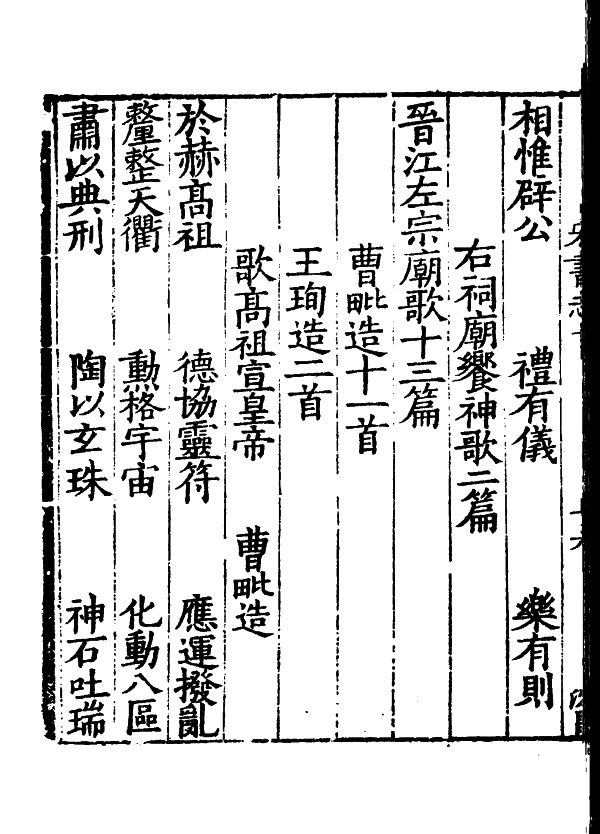 相惟辟公　禮有儀　樂有則
右祠廟饗神歌二篇
晉江左宗廟歌十三篇
曹毗造十一首
王珣造二首
歌高祖宣皇帝　曹毗造
於赫高祖　德協靈符　應運撥亂
釐整天衢　勳格宇宙　化動八區
肅以典刑　陶以玄珠　神石吐瑞